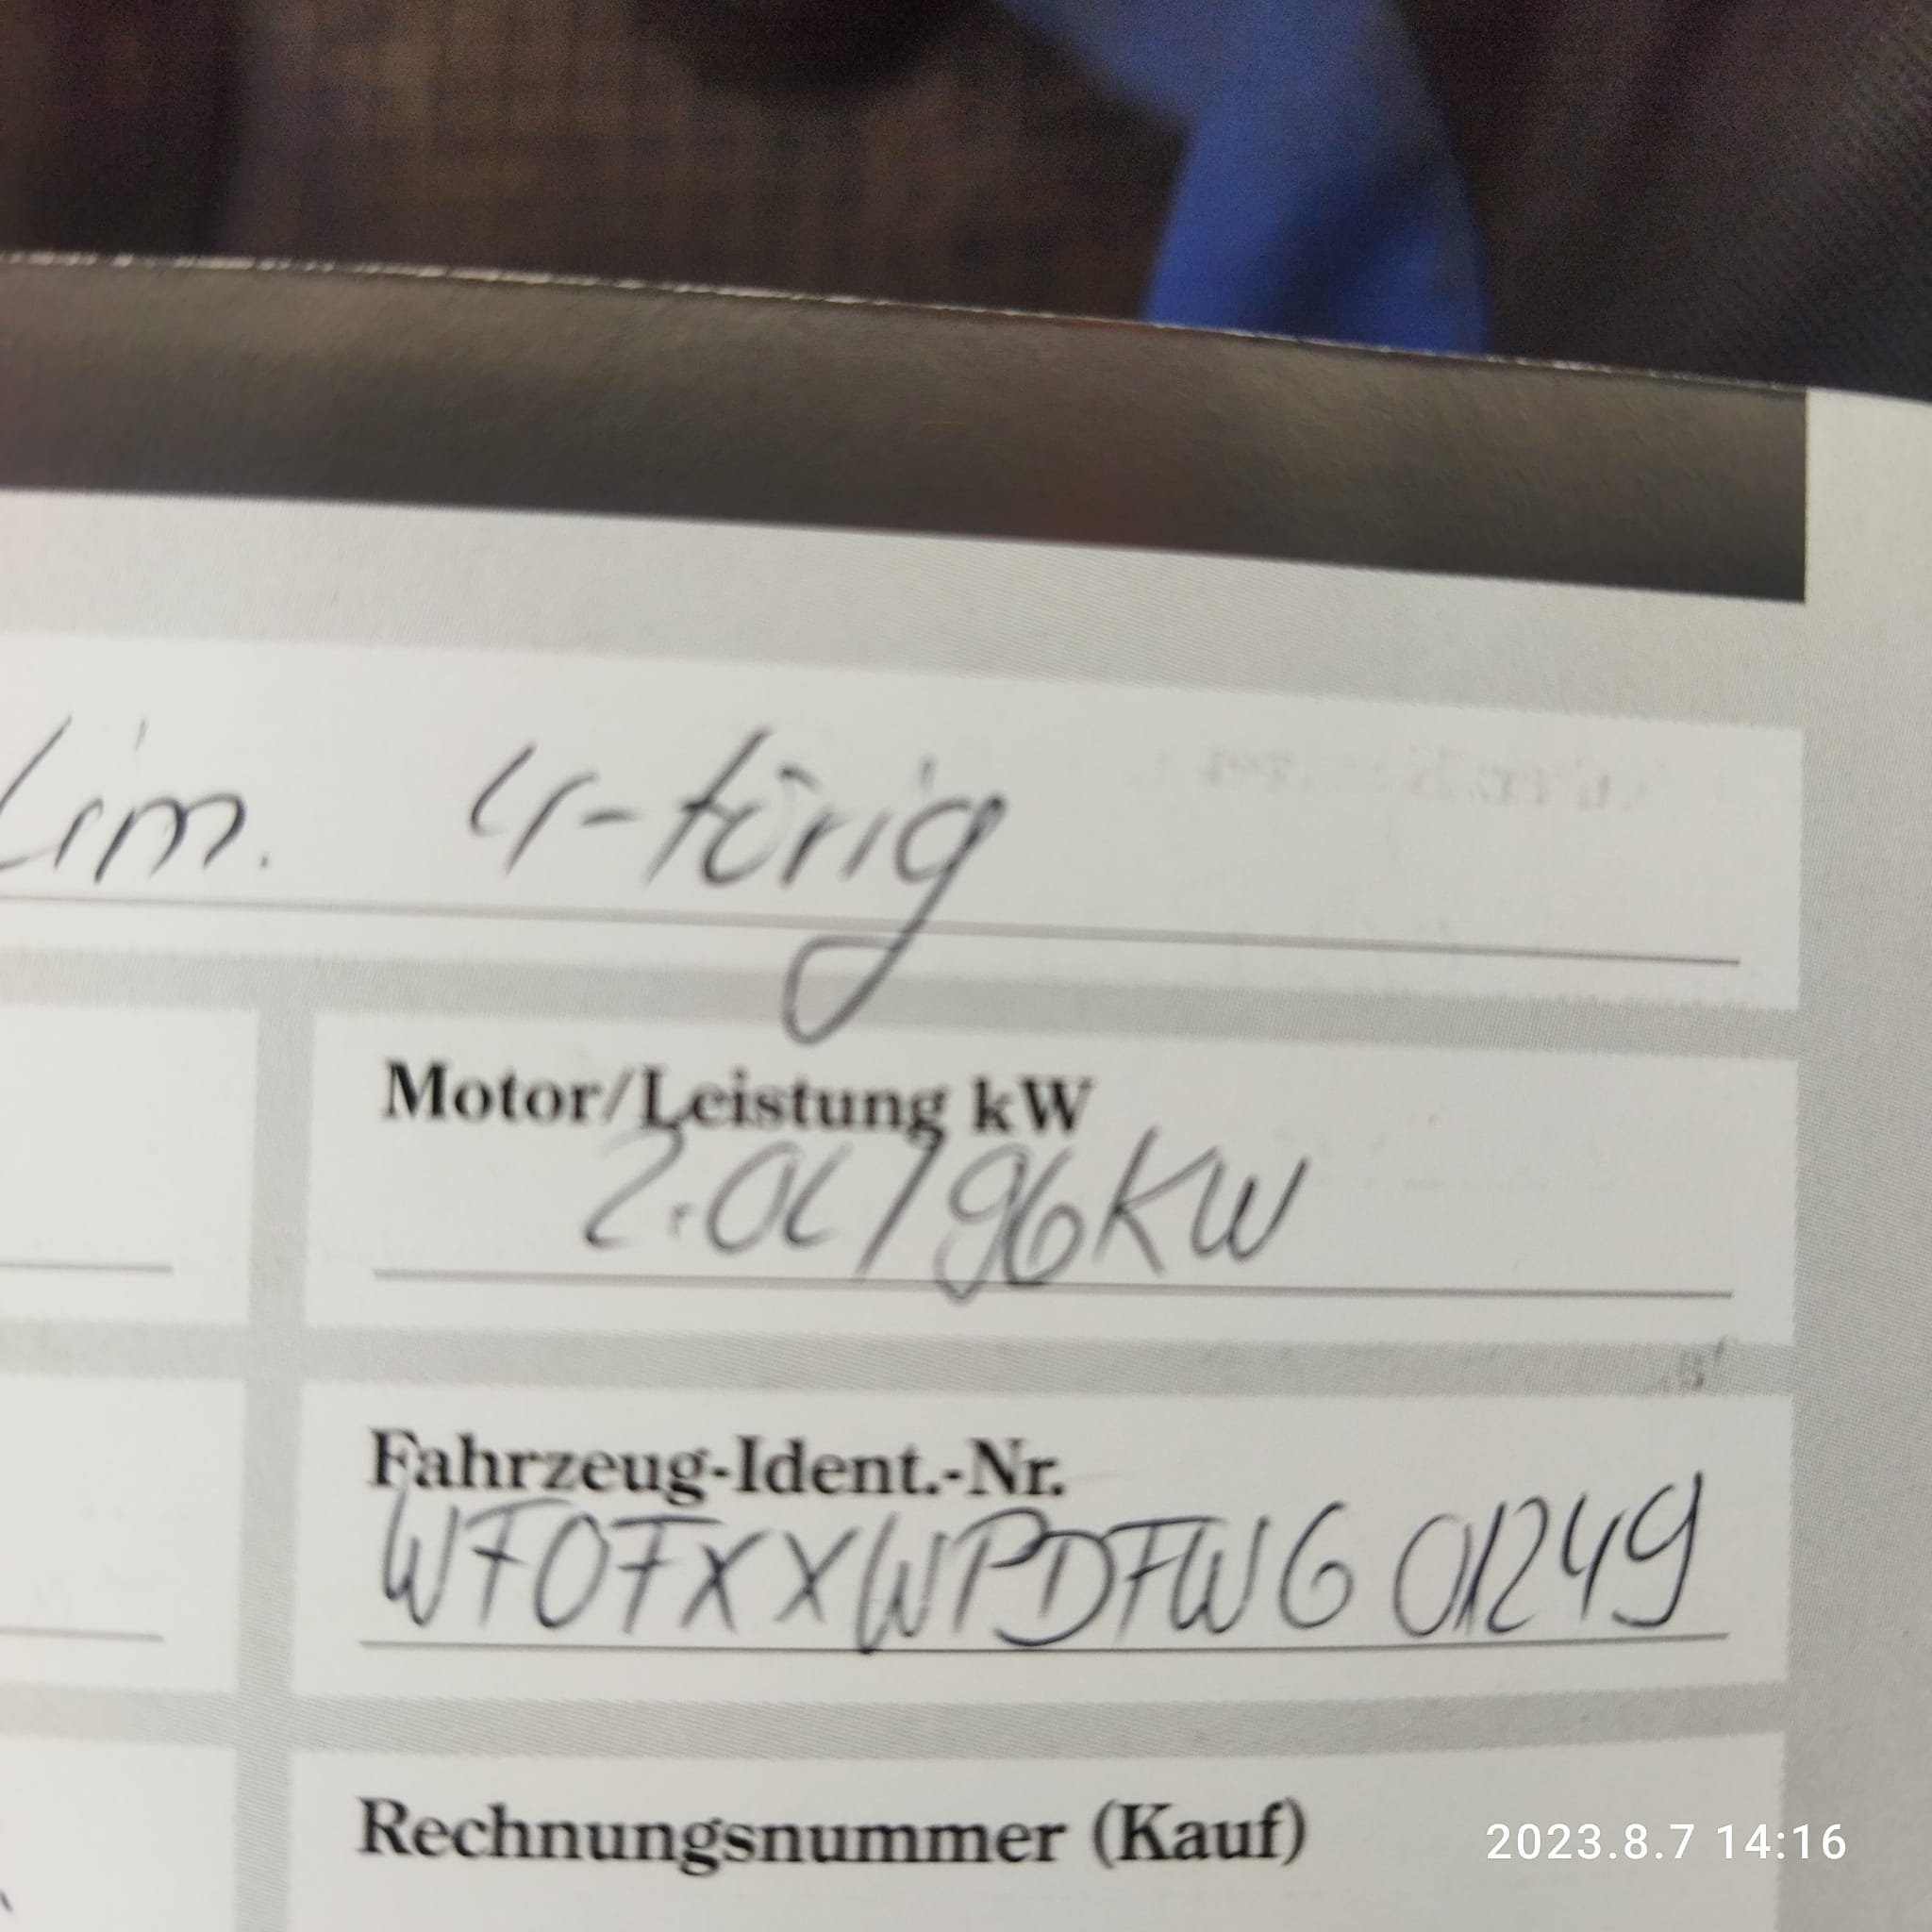 Lim. 4-türig
Motor/Leistung kW
2.0L/96KW
Fahrzeug-Ident.-Nr.
WF0FXXWPDFWG01249
Rechnungsnummer (Kauf)
2023.8.7 14:16